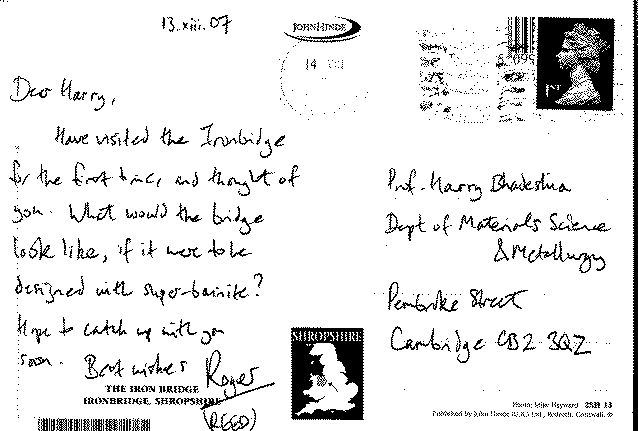 13.xiii.07
JOHN HINDE
14
1ST
Dear Harry,
Have visited the Ironbridge
for the first time, and thought of
you. What would the bridge
look like, if it were to be
designed with super-bainite?
Hope to catch up with you
soon. Best wishes
Roger
(REED)
THE IRON BRIDGE
IRONBRIDGE, SHROPSHIRE
SHROPSHIRE
Prof. Harry Bhadeshia
Dept of Materials Science
& Metallurgy
Pembroke Street
Cambridge CB2 3QZ
Photo: Mike Hayward 2SH 13
Published by John Hinde (U.K.) Ltd., Redruth, Cornwall. ©